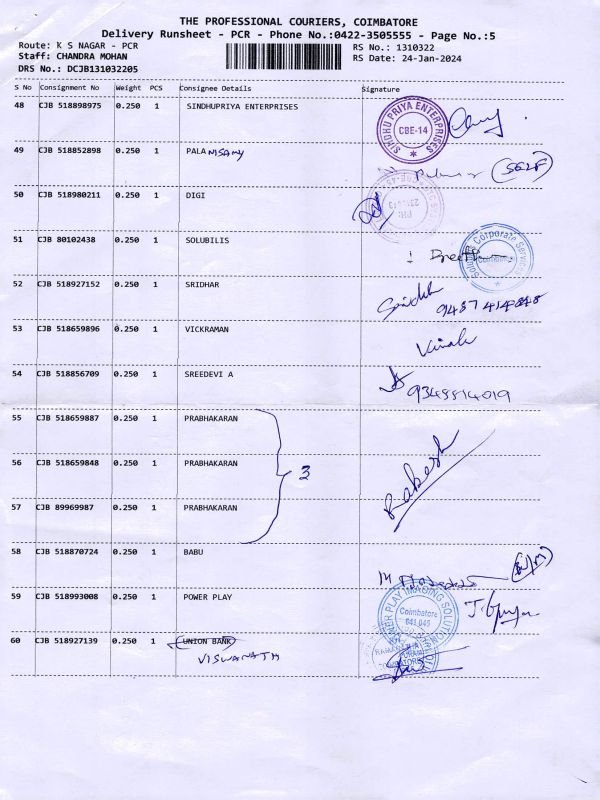 THE PROFESSIONAL COURIERS, COIMBATORE
Delivery Runsheet - PCR - Phone No.:0422-3505555 - Page No.:5
Route: K S NAGAR - PCR
RS No.: 1310322
Staff: CHANDRA MOHAN
RS Date: 24-Jan-2024
DRS No.: DCJB131032205
S No Consignment No Weight PCS Consignee Details Signature
48 CJB 518898975 0.250 1 SINDHUPRIYA ENTERPRISES
SINDHU PRIYA ENTERPRISES
CBE-14
49 CJB 518852898 0.250 1 PALANISAMY
(SELF)
50 CJB 518980211 0.250 1 DIGI
51 CJB 80102438 0.250 1 SOLUBILIS
Corporate Services
52 CJB 518927152 0.250 1 SRIDHAR
53 CJB 518659896 0.250 1 VICKRAMAN
54 CJB 518856709 0.250 1 SREEDEVI A
55 CJB 518659887 0.250 1 PRABHAKARAN
56 CJB 518659848 0.250 1 PRABHAKARAN
3
Rakesh
57 CJB 89969987 0.250 1 PRABHAKARAN
58 CJB 518870724 0.250 1 BABU
59 CJB 518993008 0.250 1 POWER PLAY
POWER PLAY IMAGING SOLUTION
Coimbatore
641 045
60 CJB 518927139 0.250 1 UNION BANK
VISWANATH